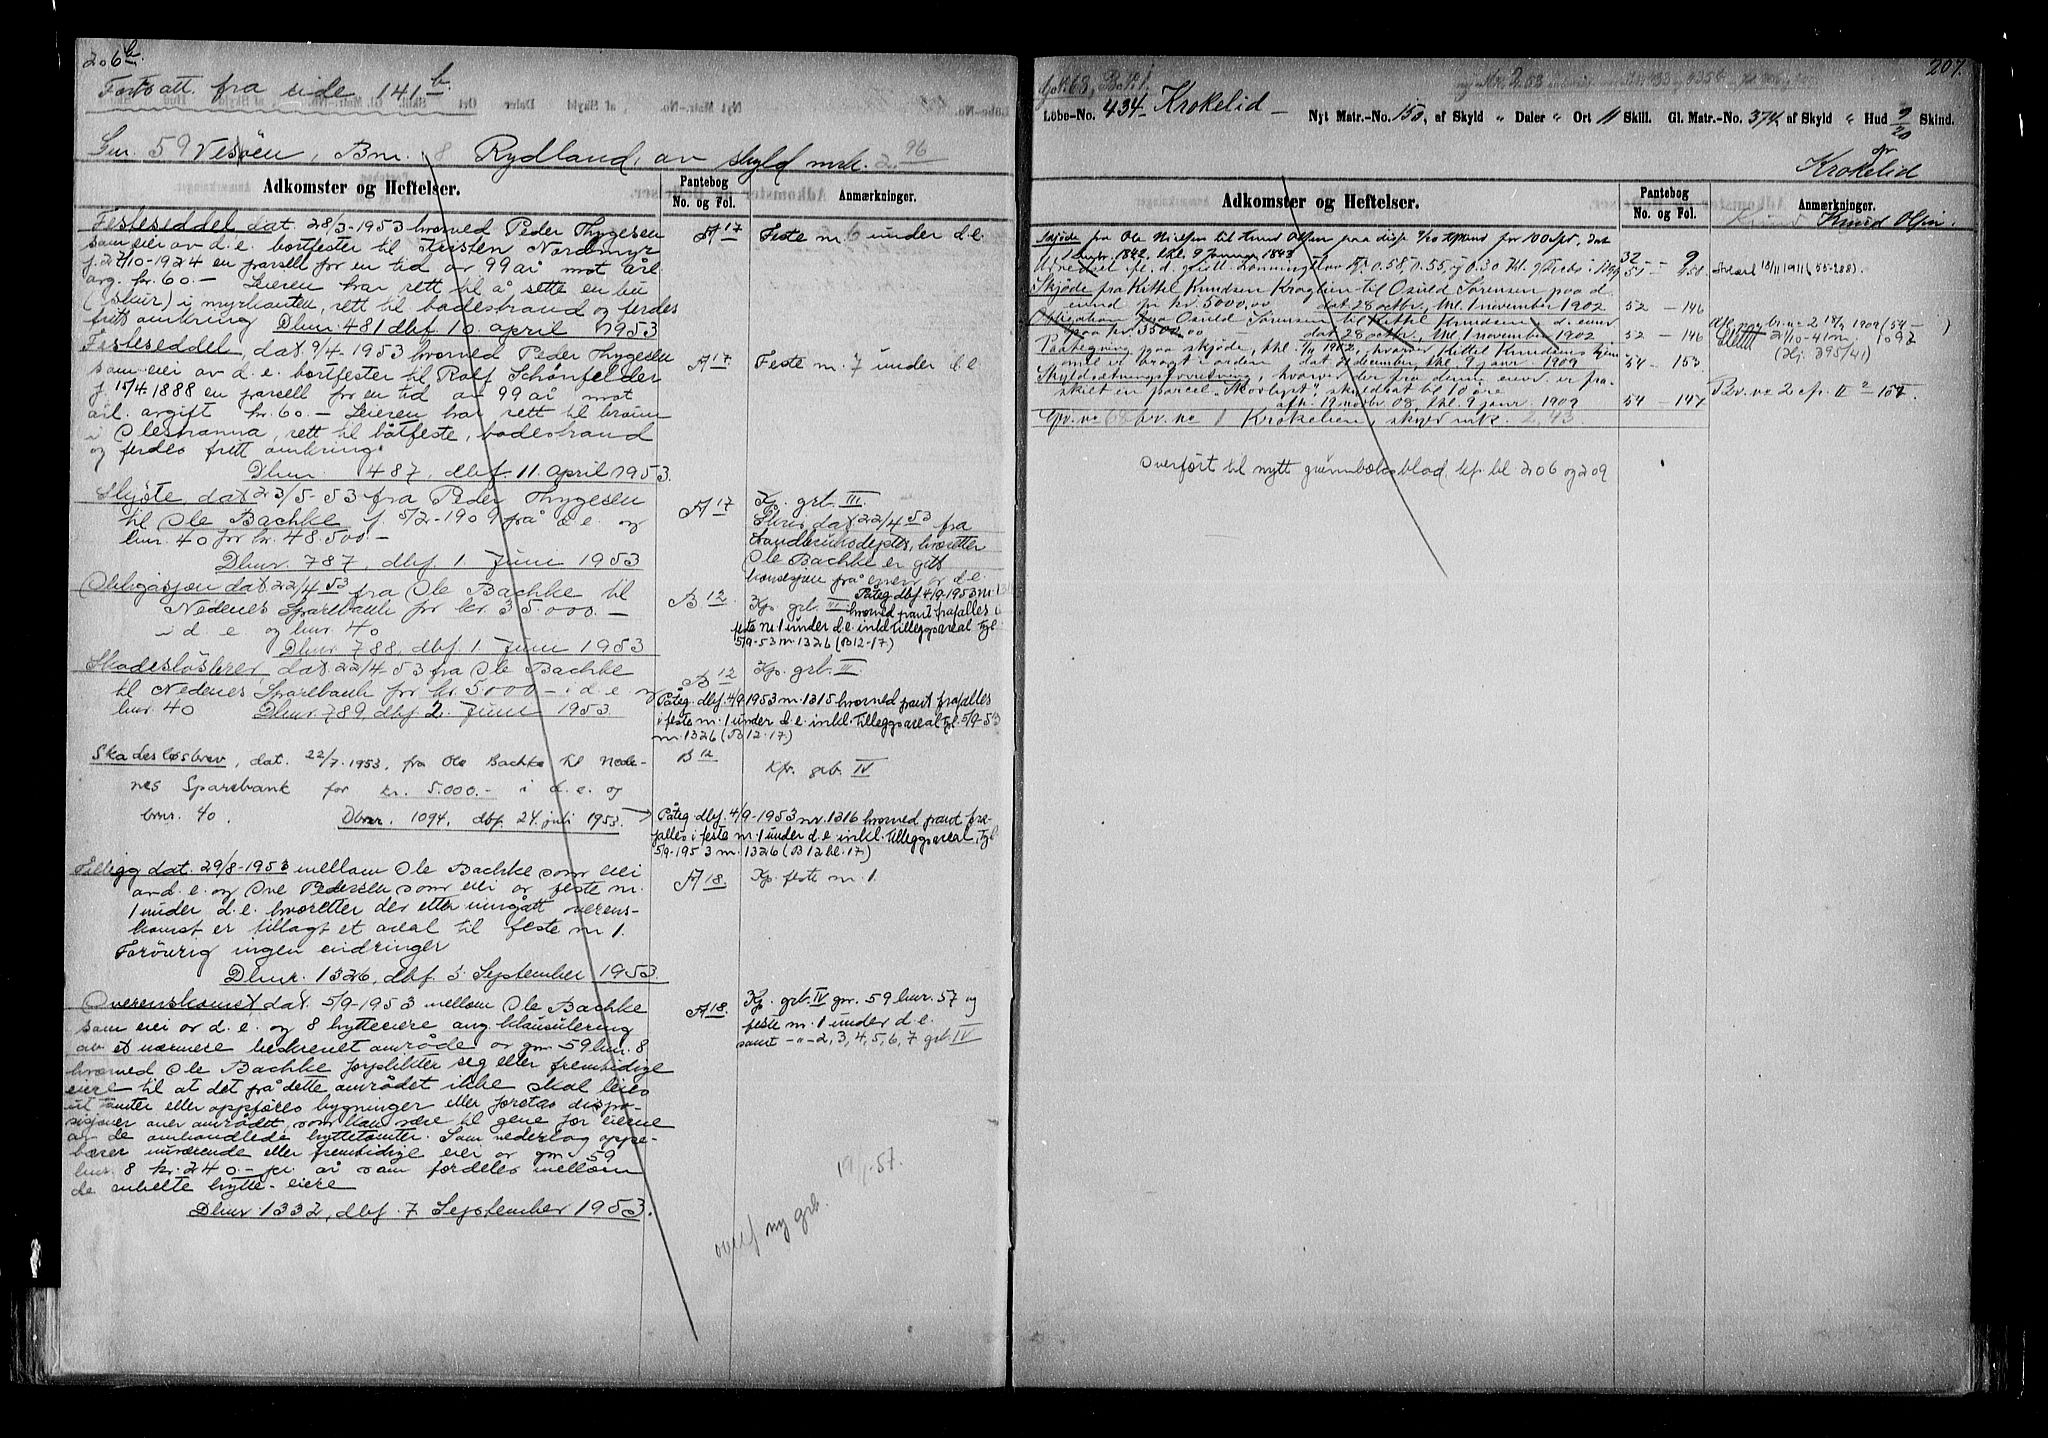 206b.
Fortsatt fra side 141b
Gnr. 59 Vesøen, Bnr. 8 Rydland, av skyld mrk. 2.96
Adkomster og Heftelser.
Pantebog
No. og Fol.
Anmærkninger.
Festeseddel dat 28/3-1953 hvorved Peder Thygesen
som eier av d.e. bortfester til Kristen Nordmyr
f. 27/10-1924 en parsell for en tid av 99 år mot årl
avg. kr. 60.- Leieren har rett til å sette en bu
(skur) i myrkanten, rett til badestrand og ferdes
fritt omkring Dbnr 481 dbf 10. april 1953
A 17
Feste nr. 6 under d.e.
Festeseddel, dat 9/4-1953 hvorved Peder Thygesen
som eier av d.e. bortfester til Rolf Schönfelder
f. 15/4-1888 en parsell for en tid av 99 år mot
årl. avgift kr. 60.- Leieren har rett til brønn
i Olestranna, rett til båtfeste, badestrand
og ferdes fritt omkring.
Dbnr. 487, dbf. 11. april 1953.
A 17
Feste nr. 7 under d.e.
Skjøte, dat 23/5-53 fra Peder Thygesen
til Ole Bachke f. 5/2-1909 på d.e. og
bnr. 40 for kr. 48.500.-
Dbnr. 787, dbf. 1. Juni 1953
A 17
Kp. grb. III.
Skriv dat 22/4 53 fra
Landbruksdeptet, hvoretter
Ole Bachke er gitt
konsesjon på erverv av d.e.
Obligasjon dat 22/4 53 fra Ole Bachke til
Nedenes Sparebank for kr. 35.000.-
i d e og bnr. 40
Dbnr. 788, dbf. 1 Juni 1953
B 12
Kp. grb. III
Påteg dbf. 4/9-1953 nr. 13
hvorved pant frafalles i
feste nr. 1 under d.e. inkl. tilleggsareal tgl
5/9-53 nr. 1326 (B 12-17)
Skadesløsbrev, dat 22/4-53 fra Ole Bachke
til Nedenes Sparebank for kr 5000- i d.e. og
bnr. 40 Dbnr. 789 dbf 2. Juni 1953.
B 12
Kp. grb. III
Påteg dbf. 4/9 1953 nr. 1315 hvorved pant frafalles
i feste nr. 1 under d.e. inkl. tilleggsareal tgl. 5/9-53
nr. 1326 (B 12-17)
Skadesløsbrev, dat. 22/7-1953, fra Ole Bachke til Nede-
nes Sparebank for kr. 5.000.- i d.e. og
bnr. 40. Dbnr. 1094, dbf. 24. juli 1953.
B 12
Kfr. grb. IV
Påteg dbf. 4/9-1953 nr. 1316 hvorved pant fra-
falles i feste nr. 1 under d.e. inkl. tilleggsareal, tgl
5/9-1953 nr. 1326 (B 12 bl. 17)
Tillegg dat. 29/8-1953 mellom Ole Bachke som eier
av d.e. og Ove Pedersen som eier av feste nr.
1 under d.e. hvoretter det etter inngått overens-
komst er tillagt et areal til feste nr 1.
Forøvrig ingen endringer
Dbnr. 1326, dbf. 5. September 1953.
A 18.
Kp. feste nr. 1.
Overenskomst dat. 5/9-1953 mellom Ole Bachke
som eier av d.e. og 8 hytteeiere ang. klausulering
av et nærmere beskrevet område av gnr 59 bnr. 8
hvorved Ole Bachke forplikter seg eller fremtidige
eiere til at det på dette området ikke skal leies
ut tomter eller oppføres bygninger eller foretas dispo-
sisjoner over området, som kan være til gene for eierne
av de omhandlede hyttetomter. Som vederlag oppe-
bærer nuværende eller fremtidige eier av gnr 59
bnr. 8 kr. 240.- pr. år som fordeles mellom
de enkelte hytte-eiere
Dbnr 1332, dbf. 7 September 1953.
A 18.
Kp. grb. IV gnr. 59 bnr. 57 og
feste nr. 1 under d.e.
samt -"- 2, 3, 4, 5, 6, 7 grb. IV
overf ny grb.
207.
G.No 63, B.No 1.
Løbe-No. 434. Krokelid - Nyt Matr.-No. 150, af Skyld " Daler " Ort 11 Skill. Gl. Matr.-No. 374, af Skyld " Hud 9/20 Skind.
Krokelid
Adkomster og Heftelser.
Pantebog
No. og Fol.
Anmærkninger.
Knud Olsen.
Skjøde fra Ole Nielsen til Knud Olsen paa
32 9
Skjøde fra Kittel Knudsen Kragtien til Osuld Sørensen paa d.
eiend for kr. 5000.00 dat 28 octbr, thl. 1 november 1902
52 - 146
Obligation fra Osuld Sørensen til Kittel Knudsen i d. eiend
paa kr 3500.00 dat 28 octbr, thl. 1 november 1902
52 - 146
Paategning paa skjøde,
dat 21 december, thl. 9 janr 1909
54 - 153
Skyldsætningsforretning, hvorved der fra denne eiend. er fra-
skilt en parcel "Skovlyst", skyldsat til 10 øre
afh. 19 novbr. 08, thl. 9 janr. 1909
54 - 147
Brv. no 2
Gr. no 63 br. no 1 Krokelien, skyld mrk. 2,43.
Overført til nytt grunnboksblad, kfr bl. 206 og 209